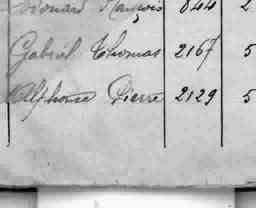 François 844 2
Gabriel Thomas 2167 5
Alphonse Pierre 2129 5